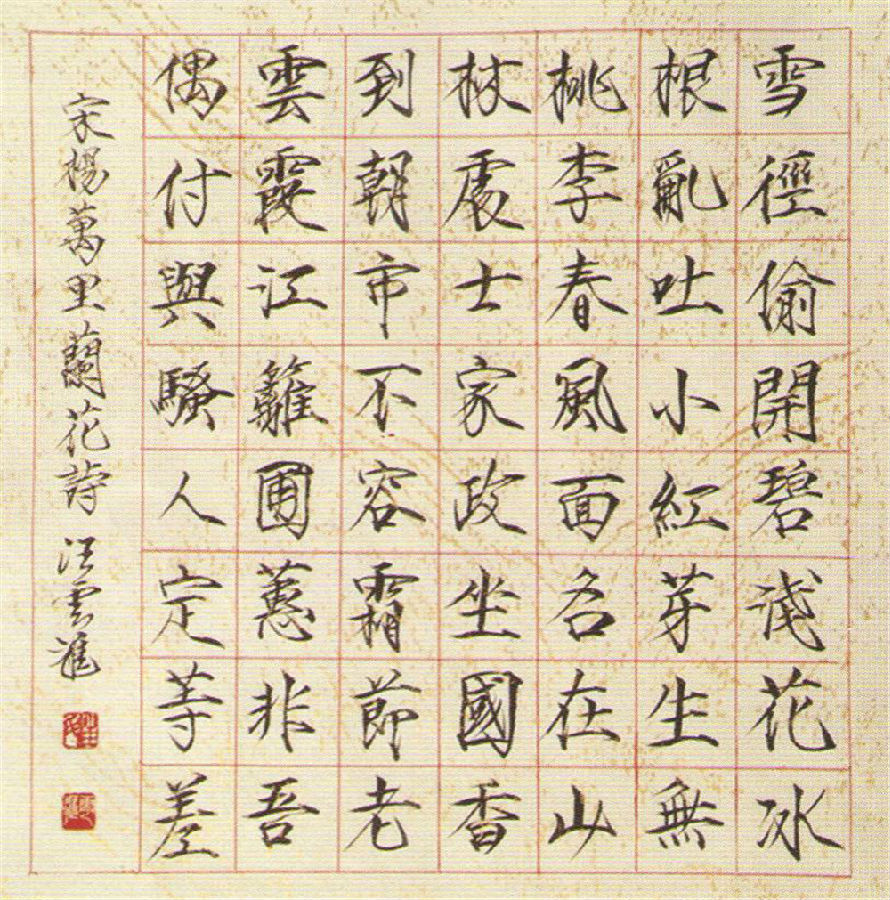 雪徑偷開碧淺花冰
根亂吐小紅芽生無
桃李春風面名在山
杖處士家政坐國香
到朝市不容霜節老
雲霞江籬圃蕙非吾
偶付與騷人定等差
宋楊萬里蘭花詩 汪雲進